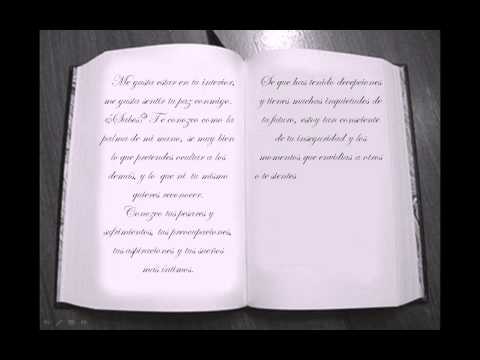 Me gusta estar en tu interior,
me gusta sentir tu paz conmigo.
¿Sabes? Te conozco como la
palma de mi mano, se muy bien
lo que pretendes ocultar a los
demás, y lo que ni tu mismo
quieres reconocer.
Conozco tus pesares y
sufrimientos, tus preocupaciones,
tus aspiraciones y tus sueños
mas íntimos.
Se que has tenido decepciones
y tienes muchas inquietudes de
tu futuro, estoy tan consciente
de tu inseguridad y los
momentos que envidias a otros
o te sientes